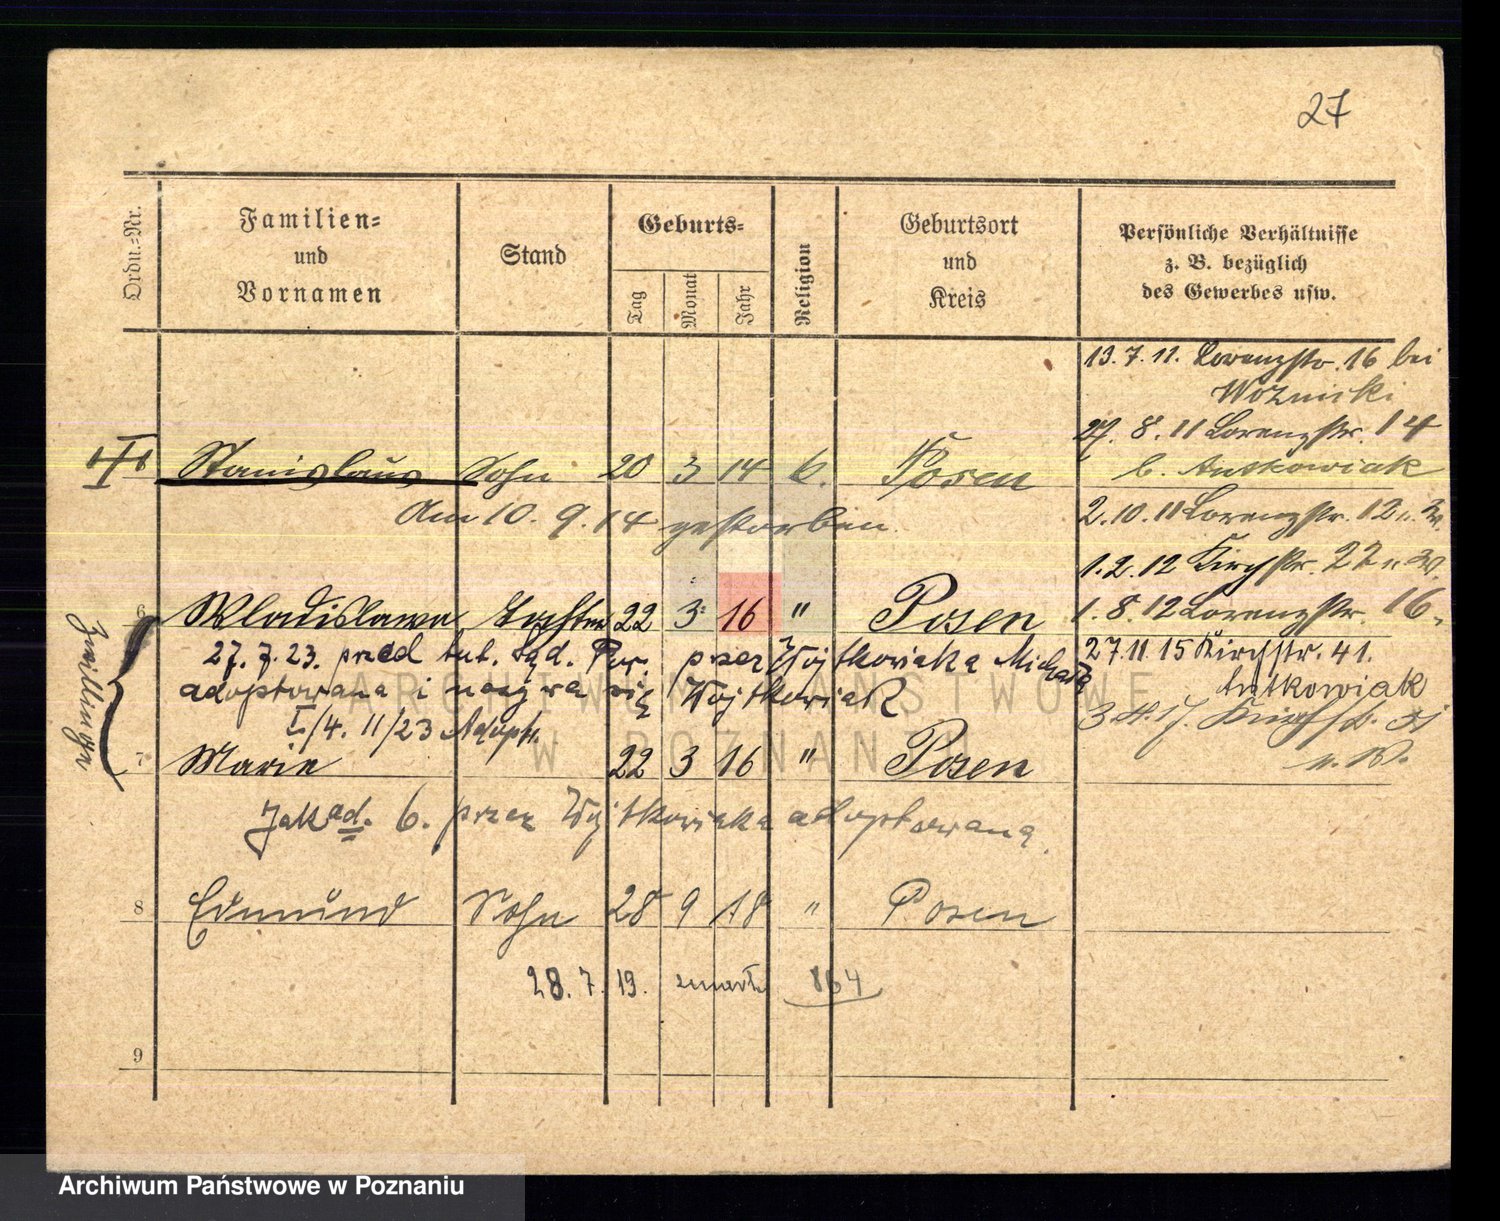 27
Ordn.-Nr.
Familien-
und
Vornamen
Stand
Geburts-
Tag
Monat
Jahr
Religion
Geburtsort
und
Kreis
Persönliche Verhältnisse
z. B. bezüglich
des Gewerbes usw.
13. 7. 11. Lorenzstr. 16 bei
Woznicki
27. 8. 11 Lorenzstr. 14
b. Antkowiak
Stanislaus Sohn 20 3 14 k. Posen
Am 10. 9. 14 gestorben.
2. 10. 11 Lorenzstr. 12
1. 2. 12 Kirchstr. 22
6 Wladislawa Tochter 22 3 16 " Posen
1. 8. 12 Lorenzstr. 16
27. 7. 23. przed tut. Sąd. Pow. przez Wojtkowiaka Michała
27 11 15 Kirchstr. 41.
adoptowana i nazywa się Wojtkowiak
Antkowiak
I./4. 11/23 Adopt.
Zwillinge
7 Marie 22 3 16 " Posen
Jak ad. 6. przez Wojtkowiaka adoptowana.
8 Edmund Sohn 28 9 18 " Posen
28. 7. 19. zmarł 864
9
ARCHIWUM PAŃSTWOWE
W POZNANIU
Archiwum Państwowe w Poznaniu